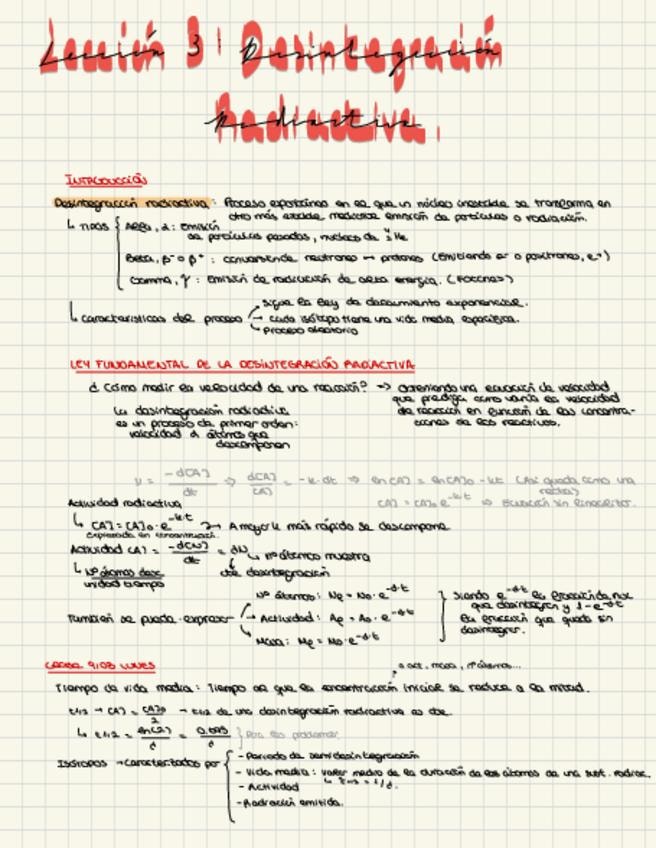 Lección 3: Desintegración
Radiactiva.
INTRODUCCIÓN
Desintegración radiactiva: Proceso espontáneo en el que un núcleo inestable se transforma en
otro más estable mediante emisión de partículas o radiación.
↳ Tipos { Alfa, α: Emisión
de partículas pesadas, núcleos de ⁴₂He
Beta, β⁻ o β⁺: convirtiendo neutrones → protones (Emitiendo e⁻ o positrones, e⁺)
Gamma, γ: Emisión de radiación de alta energía. (Fotones)
↳ Características del proceso → Sigue la ley de decaimiento exponencial.
→ Cada isótopo tiene una vida media específica.
→ Proceso aleatorio
LEY FUNDAMENTAL DE LA DESINTEGRACIÓN RADIACTIVA
¿Cómo medir la velocidad de una reacción? => Obteniendo una ecuación de velocidad
que prediga como varía la velocidad
de reacción en función de las concentra-
ciones de los reactivos.
La desintegración radiactiva
es un proceso de primer orden:
velocidad a átomos que
descomponen
v = -d[A]/dt => d[A]/[A] = -k·dt => ln[A] = ln[A]₀ - kt (Así queda como una
recta)
[A] = [A]₀ e^-k·t => Ecuación sin linealizar.
Actividad radiactiva
↳ [A] = [A]₀·e^-k·t → A mayor k más rápido se descompone
Expresada en concentración.
Actividad (A) = -d[N]/dt = λN → Nº átomos muestra
cte desintegración
↳ Nº átomos desc
unidad tiempo
Nº átomos: Nₜ = N₀·e^-λ·t
También se puede expresar → Actividad: Aₜ = A₀·e^-λ·t
Masa: Mₜ = M₀·e^-λ·t
Siendo e^-λ·t la fracción de nuc
que desintegran y 1-e^-λ·t
la fracción que queda sin
desintegrar.
CLASE 9/03 LUNES
o act, masa, nº átomos...
Tiempo de vida media: Tiempo al que la concentración inicial se reduce a la mitad.
t1/2 → [A] = [A]₀/2 → t1/2 de una desintegración radiactiva es cte.
↳ t1/2 = ln(2)/λ = 0.693/λ } Para los problemas
Isótopos → Caracterizados por { - Periodo de semidesintegración
- Vida media: valor medio de la duración de los átomos de una sust. radiac.
- Actividad
- Radiación emitida.